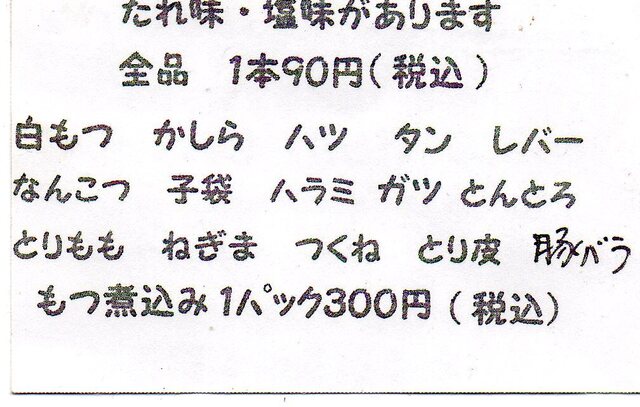 たれ味・塩味があります
全品 1本90円(税込)
白もつ かしら ハツ タン レバー
なんこつ 子袋 ハラミ ガツ とんとろ
とりもも ねぎま つくね とり皮 豚バラ
もつ煮込み 1パック300円(税込)